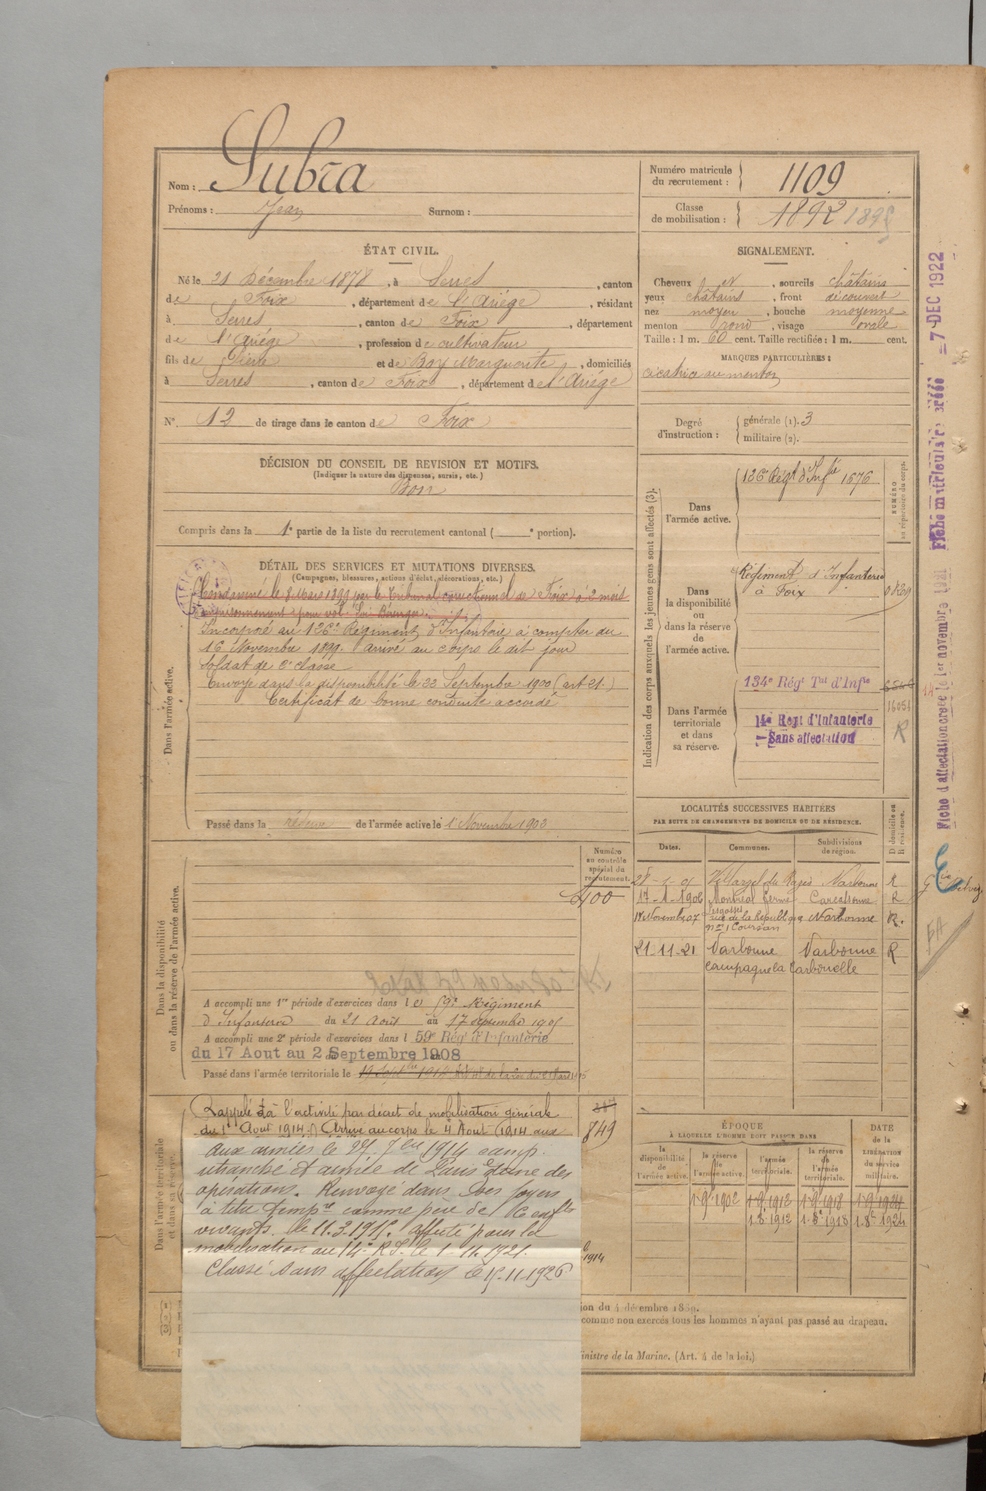 Nom : Subra
Prénoms : Jean Surnom :
Numéro matricule du recrutement : 1109
Classe de mobilisation : 1892
ÉTAT CIVIL.
Né le 21 Décembre 1878, à Serres, canton
de Foix, département de l'Ariège, résidant
à Serres, canton de Foix, département
de l'Ariège, profession de cultivateur
fils de et de Marguerite, domiciliés
à Serres, canton de Foix, département de l'Ariège
N° 12 de tirage dans le canton de Foix
DÉCISION DU CONSEIL DE REVISION ET MOTIFS.
(Indiquer la nature des dispenses, sursis, etc.)
Bon
Compris dans la 1e partie de la liste du recrutement cantonal ( e portion).
SIGNALEMENT.
Cheveux et, sourcils châtains
yeux châtains, front découvert
nez moyen, bouche moyenne
menton rond, visage ovale
Taille : 1 m. 60 cent. Taille rectifiée : 1 m. cent.
MARQUES PARTICULIÈRES :
cicatrice au menton
Degré d'instruction : générale (1). 3
militaire (2).
DÉTAIL DES SERVICES ET MUTATIONS DIVERSES.
(Campagnes, blessures, actions d'éclat, décorations, etc.)
Condamné le 8 Mars par le Tribunal correctionnel de Foix à 2 mois
d'emprisonnement pour vol.
Incorporé au 126e Régiment d'Infanterie à compter du
16 Novembre 1899. arrivé au corps le dit jour
soldat de 2e classe
Envoyé dans la disponibilité le 22 Septembre 1900 (art 21.)
Certificat de bonne conduite accordé
Dans l'armée active.
Passé dans la réserve de l'armée active le 1 Novembre 1903
Indication des corps auxquels les jeunes gens sont affectés (3).
NUMÉRO au répertoire du corps.
Dans l'armée active.
126e Régt d'Infie 1676
Dans la disponibilité ou dans la réserve de l'armée active.
Régiment d'Infanterie
à Foix
Dans l'armée territoriale et dans sa réserve.
134e Régt Tal d'Infie
14e Regt d'Infanterie
Sans affectation
R
LOCALITÉS SUCCESSIVES HABITÉES
PAR SUITE DE CHANGEMENTS DE DOMICILE OU DE RÉSIDENCE.
Dates. Communes. Subdivisions de région. D. domicile ou R. résidence.
Narbonne R
17-1-1906 Montréal Carcassonne R
rue de la République
n° 1 Coursan Narbonne R.
21-11-21 Narbonne Narbonne R
campagne la Carbouelle
Numéro au contrôle spécial du recrutement.
400
Dans la disponibilité ou dans la réserve de l'armée active.
A accompli une 1re période d'exercices dans le 59e Régiment
d'Infanterie du 21 Août au 17 septembre 1905
A accompli une 2e période d'exercices dans l 59e Régt d'Infanterie
du 17 Aout au 2 Septembre 1908
Passé dans l'armée territoriale le
Dans l'armée territoriale et dans sa réserve.
Rappelé à l'activité par décret de mobilisation générale
du 1er Août 1914. Arrivé au corps le 4 Août 1914 aux
849
aux armées le 27 7bre 1914 camp
retranché et armée de Paris Zone des
opérations. Renvoyé dans ses foyers
à titre tempre comme père de 6 enfts
vivants. le 11.3.1915. affecté pour la
mobilisation au 14e R.I. le 1-11.1921.
Classé sans affectation le 15-11-1926
1914
ÉPOQUE
À LAQUELLE L'HOMME DOIT PASSER DANS
DATE de la LIBÉRATION du service militaire.
la disponibilité de l'armée active. la réserve de l'armée active. l'armée territoriale. la réserve de l'armée territoriale.
1-9e 1902 1-9e 1912 1-9e 1918 1-9e 1924
1.8e 1912 1.8e 1918 1.8e 1924
comme non exercés tous les hommes n'ayant pas passé au drapeau.
Ministre de la Marine. (Art. 4 de la loi.)
Fiche d'affectation créée le 1er novembre 1921
Fiche matriculaire créée -7 DEC 1922